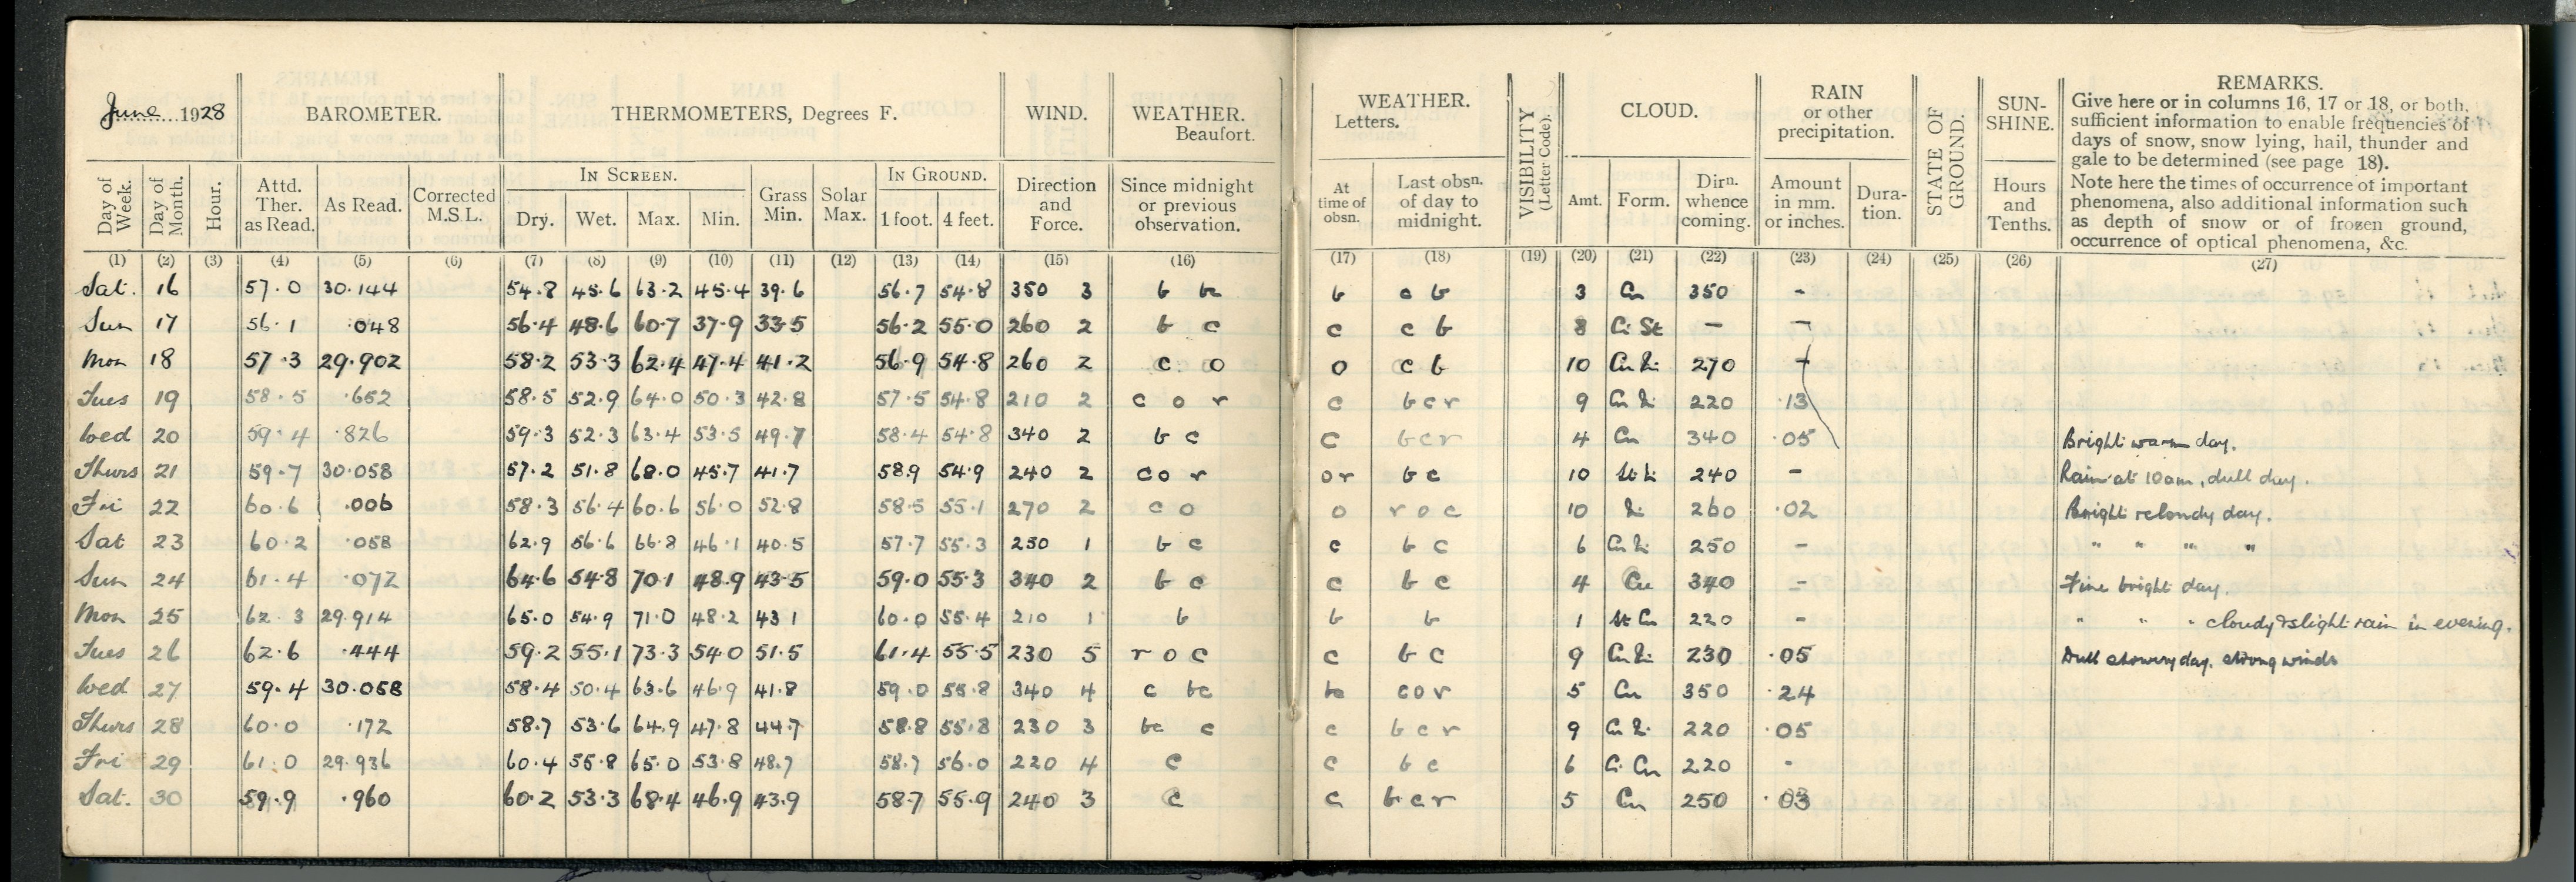 June 1928
BAROMETER.
THERMOMETERS, Degrees F.
WIND.
WEATHER.
Beaufort.
Day of Week.
Day of Month.
Hour.
Attd. Ther. as Read.
As Read.
Corrected M.S.L.
In Screen.
Dry. Wet. Max. Min.
Grass Min.
Solar Max.
In Ground.
1 foot. 4 feet.
Direction and Force.
Since midnight or previous observation.
(1) (2) (3) (4) (5) (6) (7) (8) (9) (10) (11) (12) (13) (14) (15) (16)
WEATHER.
Letters.
At time of obsn.
Last obsn. of day to midnight.
VISIBILITY (Letter Code).
CLOUD.
Amt. Form. Dirn. whence coming.
RAIN
or other
precipitation.
Amount in mm. or inches.
Duration.
STATE OF GROUND.
SUN-SHINE.
Hours and Tenths.
REMARKS.
Give here or in columns 16, 17 or 18, or both,
sufficient information to enable frequencies of
days of snow, snow lying, hail, thunder and
gale to be determined (see page 18).
Note here the times of occurrence of important
phenomena, also additional information such
as depth of snow or of frozen ground,
occurrence of optical phenomena, &c.
(17) (18) (19) (20) (21) (22) (23) (24) (25) (26) (27)
Sat. 16 57.0 30.144 54.8 45.6 63.2 45.4 39.6 56.7 54.8 350 3 b bc b c b 3 Cu 350 -
Sun 17 56.1 .048 56.4 48.6 60.7 37.9 33.5 56.2 55.0 260 2 b c c c b 8 Ci St - -
Mon 18 57.3 29.902 58.2 53.3 62.4 47.4 41.2 56.9 54.8 260 2 c o o c b 10 Cu Ni 270 -
Tues 19 58.5 .652 58.5 52.9 64.0 50.3 42.8 57.5 54.8 210 2 c o r c bcr 9 Cu Ni 220 .13
Wed 20 59.4 .826 59.3 52.3 63.4 53.5 49.7 58.4 54.8 340 2 b c c bcr 4 Cu 340 .05 Bright warm day.
Thurs 21 59.7 30.058 57.2 51.8 68.0 45.7 41.7 58.9 54.9 240 2 co r or bc 10 St Ni 240 - Rain at 10am, dull day.
Fri 22 60.6 .006 58.3 56.4 60.6 56.0 52.8 58.5 55.1 270 2 c o o roc 10 Ni 260 .02 Bright & cloudy day.
Sat 23 60.2 .058 62.9 56.6 66.8 46.1 40.5 57.7 55.3 250 1 b c c b c 6 Cu Ni 250 - " " " "
Sun 24 61.4 .072 64.6 54.8 70.1 48.9 43.5 59.0 55.3 340 2 b c c b c 4 Cu 340 - Fine bright day.
Mon 25 62.3 29.914 65.0 54.9 71.0 48.2 43.1 60.0 55.4 210 1 b b b 1 St Cu 220 - " " " cloudy & slight rain in evening.
Tues 26 62.6 .444 59.2 55.1 73.3 54.0 51.5 61.4 55.5 230 5 r o c c b c 9 Cu Ni 230 .05 Dull showery day. strong winds
Wed 27 59.4 30.058 58.4 50.4 63.6 46.9 41.8 59.0 55.8 340 4 c bc bc cor 5 Cu 350 .24
Thurs 28 60.0 .172 58.7 53.6 64.9 47.8 44.7 58.8 55.8 230 3 bc c c b c r 9 Cu Ni 220 .05
Fri 29 61.0 29.936 60.4 55.8 65.0 53.8 48.7 58.7 56.0 220 4 c c bc 6 Ci Cu 220 -
Sat. 30 59.9 .960 60.2 53.3 68.4 46.9 43.9 58.7 55.9 240 3 c c bcr 5 Cu 250 .03